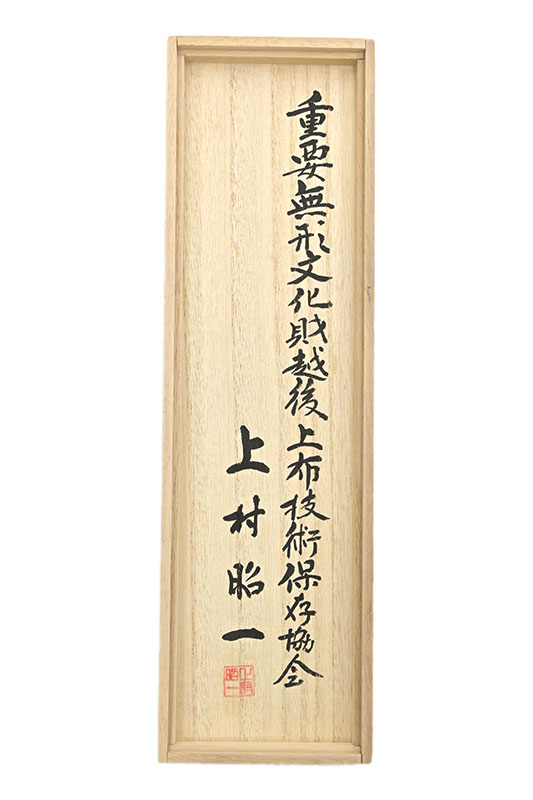 重要無形文化財越後上布技術保存協会
上村昭一